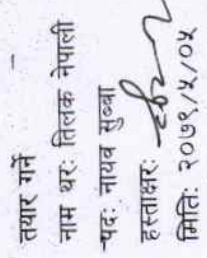 तयार गर्ने
नाम थरः तिलक नेपाली
पदः नायव सुब्बा
हस्ताक्षरः
मितिः २०७९/५/०५